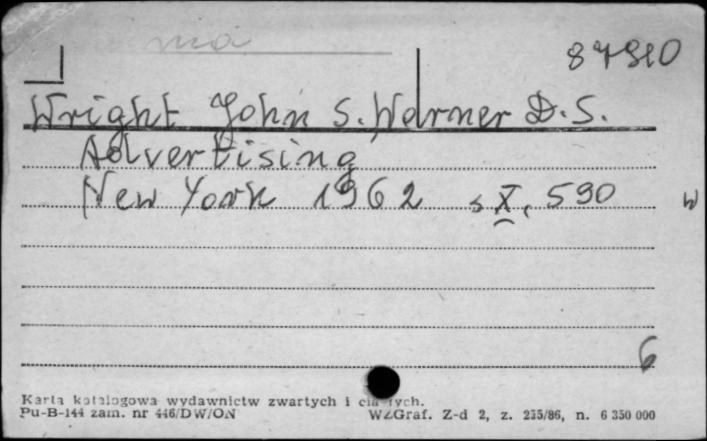 87910
Wright John S. Warner D.S.
Advertising
New York 1962 s X, 590
W
6
Karta katalogowa wydawnictw zwartych i ciągłych.
Pu-B-144 zam. nr 446/DW/ON WZGraf. Z-d 2, z. 235/86, n. 6 350 000